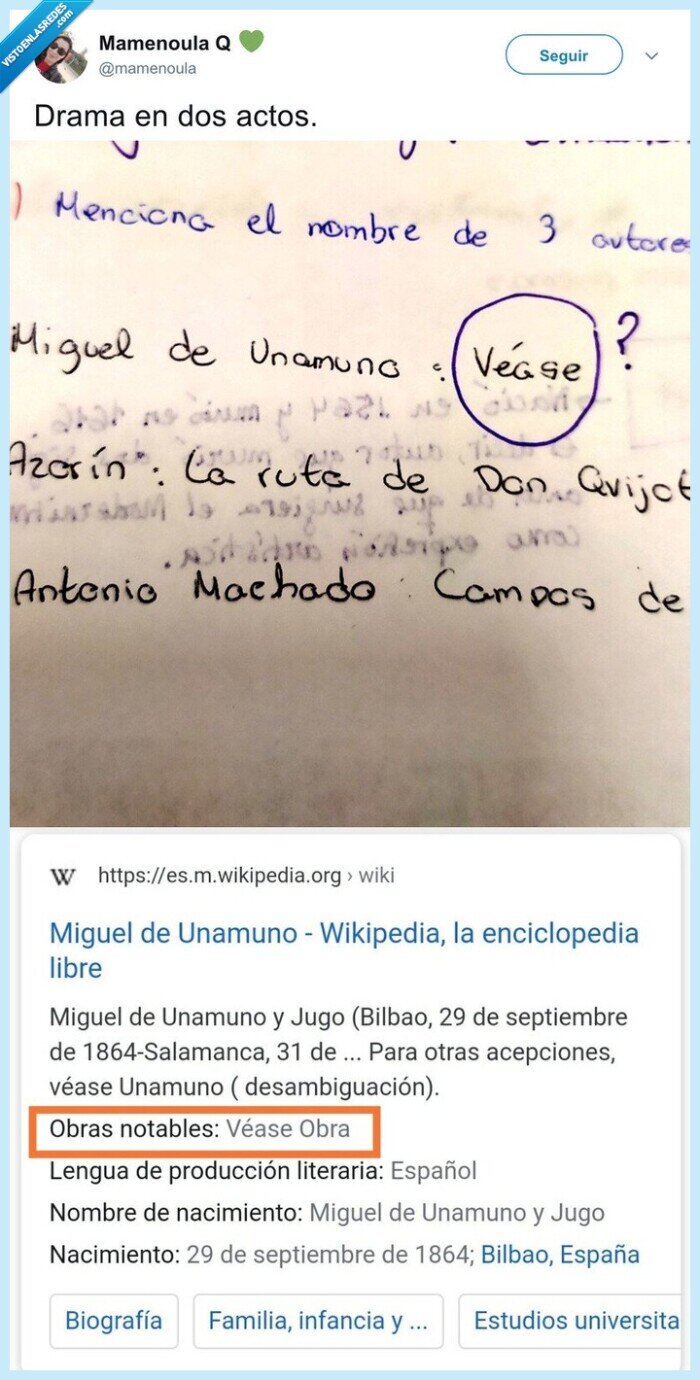 VISTOENLASREDES
.com
Mamenoula Q
@mamenoula
Seguir
Drama en dos actos.
) Menciona el nombre de 3 autores
Miguel de Unamuno : Véase ?
Azorín": La ruta de Don Quijot
Antonio Machado : Campos de
W https://es.m.wikipedia.org › wiki
Miguel de Unamuno - Wikipedia, la enciclopedia
libre
Miguel de Unamuno y Jugo (Bilbao, 29 de septiembre
de 1864-Salamanca, 31 de ... Para otras acepciones,
véase Unamuno ( desambiguación).
Obras notables: Véase Obra
Lengua de producción literaria: Español
Nombre de nacimiento: Miguel de Unamuno y Jugo
Nacimiento: 29 de septiembre de 1864; Bilbao, España
Biografía
Familia, infancia y ...
Estudios universita